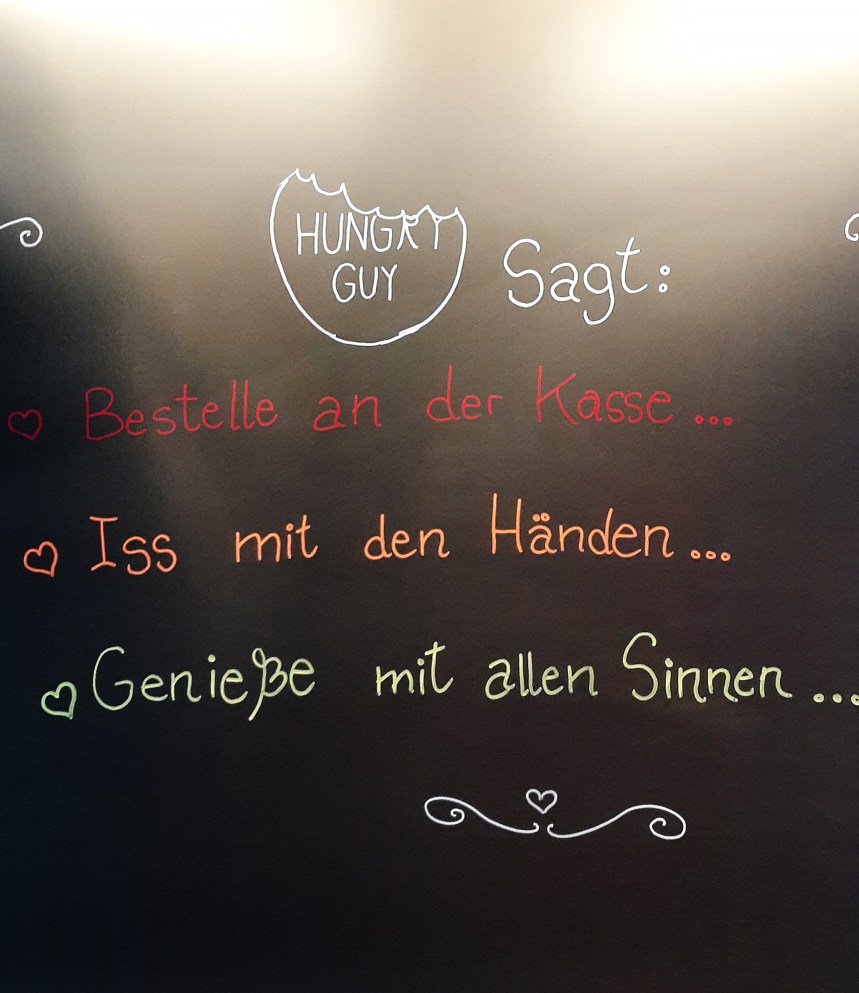 HUNGRY
GUY Sagt:
♡ Bestelle an der Kasse...
♡ Iss mit den Händen...
♡ Genieße mit allen Sinnen...